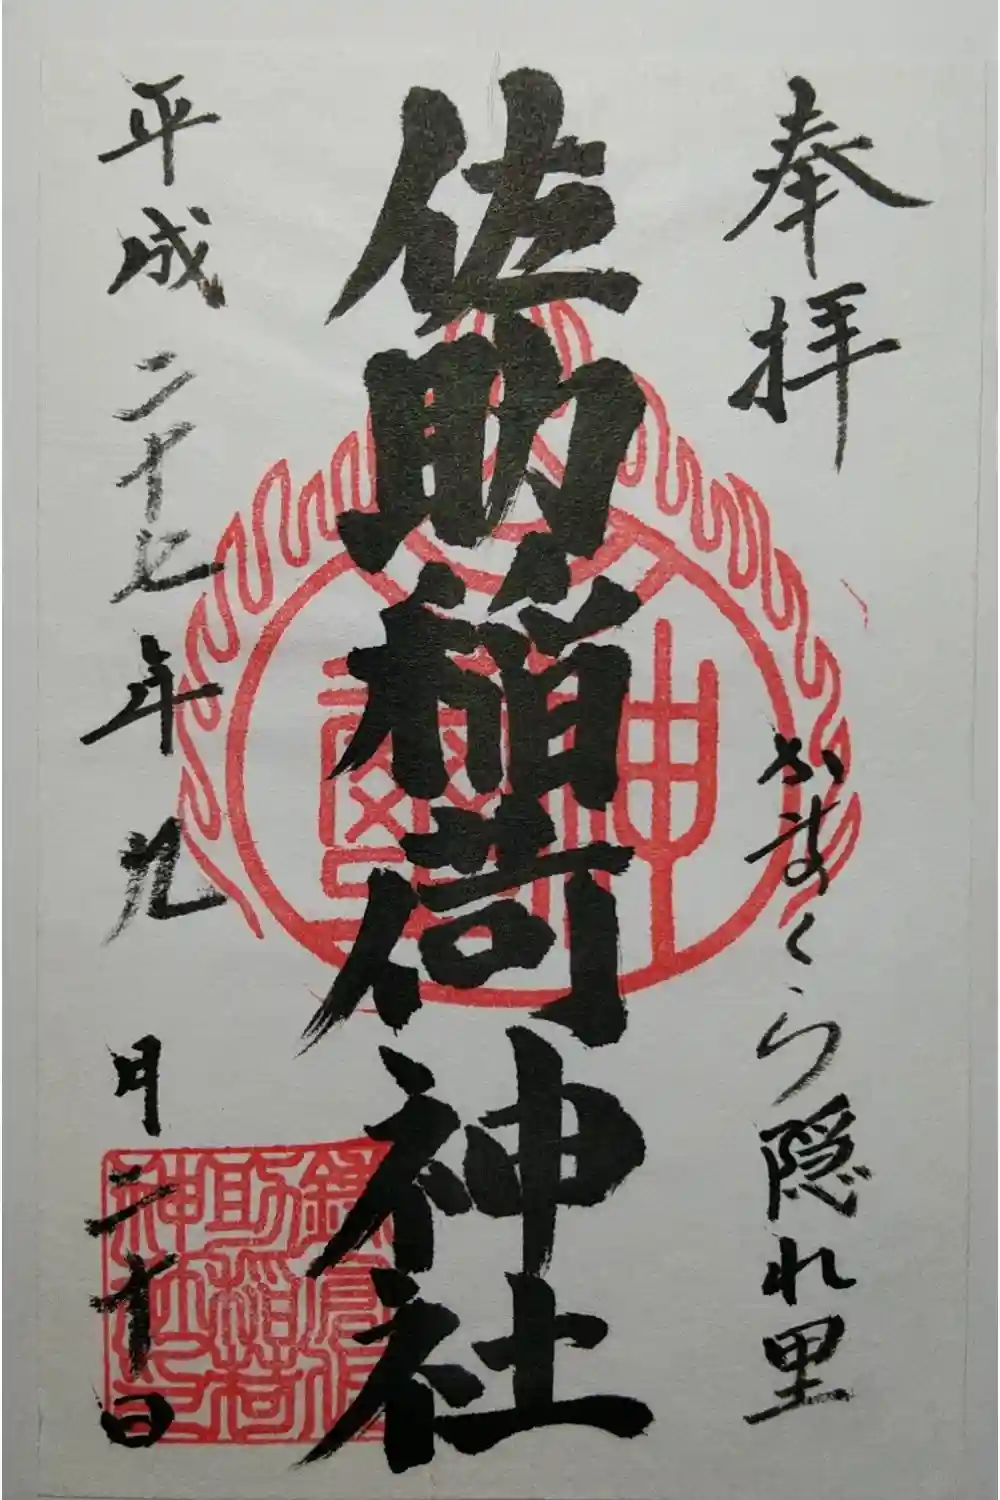 奉拝
かまくら隠れ里
佐助稲荷神社
平成二十七年九月二十日
鎌倉佐
助稲荷
神社印